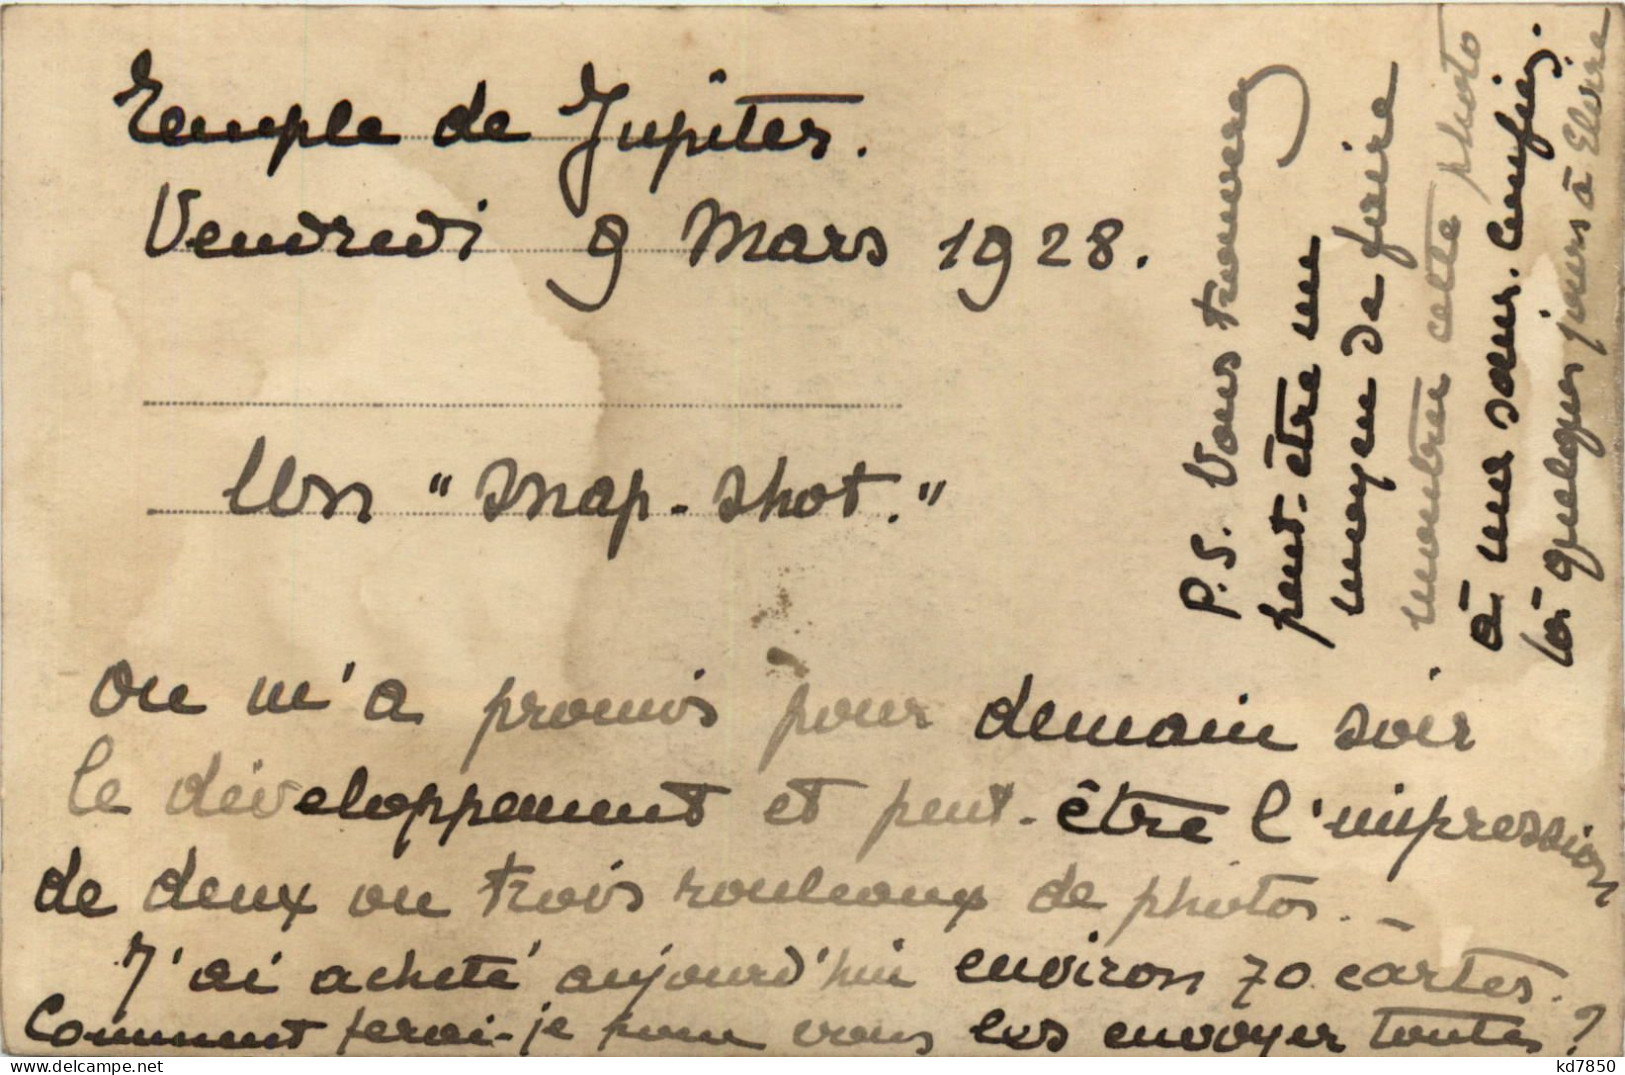 Temple de Jupiter.
Vendredi 9 Mars 1928.
Un "snap-shot."
On m'a promis pour demain soir
le développement et peut-être l'impression
de deux ou trois rouleaux de photos. -
J'ai acheté aujourd'hui environ 70 cartes.
Comment ferai-je pour vous les envoyer toutes?
P.S. Vous trouverez
peut-être un
moyen de faire
montrer cette photo
à ma sœur.
là quelques jours à
kd7850